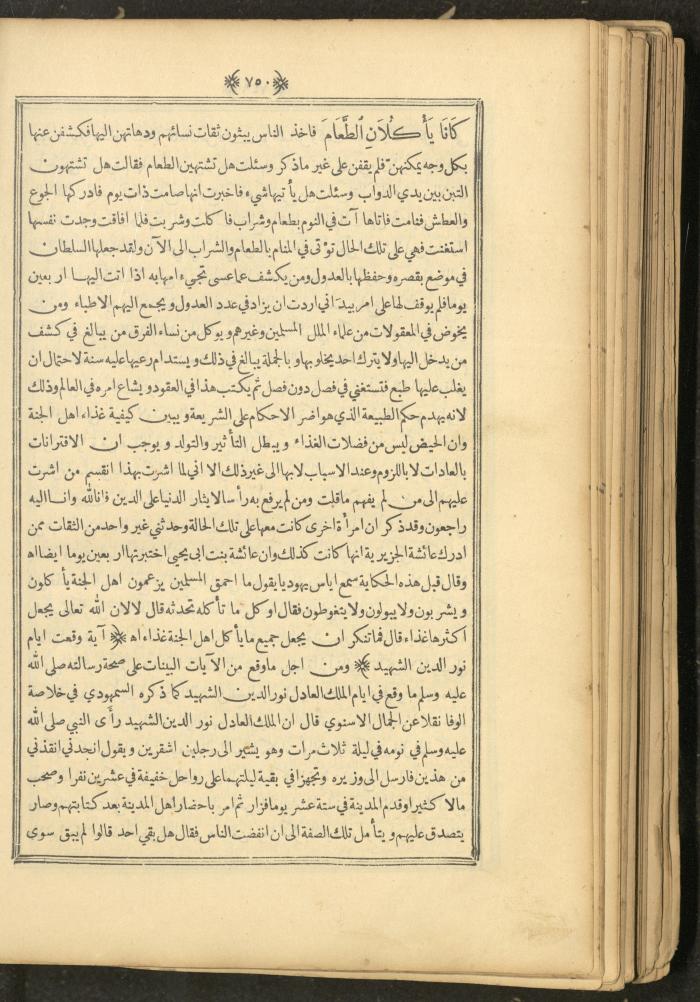 ﴿ ٧٥٠ ﴾
كَانَا يَأْكُلَانِ الطَّعَامَ فاخذ الناس يبثون ثقات نسائهم ودهاتهن اليها فكشفن عنها
بكل وجه يمكنهن فلم يقفن على غير ما ذكر وسئلت هل تشتهين الطعام فقالت هل تشتهون
التبن بين يدي الدواب وسئلت هل يأتيها شيء فاخبرت انها صامت ذات يوم فادركها الجوع
والعطش فنامت فاتاها آت في النوم بطعام وشراب فاكلت وشربت فلما افاقت وجدت نفسها
استغنت فهي على تلك الحال تؤتى في المنام بالطعام والشراب الى الآن ولقد جعلها السلطان
في موضع بقصره وحفظها بالعدول ومن يكشف عما عسى تجيء امها به اذا اتت اليها اربعين
يوما فلم يوقف لها على امر بيد اني اردت ان يزاد في عدد العدول ويجمع اليهم الاطباء ومن
يخوض في المعقولات من علماء الملل المسلمين وغيرهم ويوكل من نساء الفرق من يبالغ في كشف
من يدخل اليها ولا يترك احد يخلو بها وبالجملة يبالغ في ذلك ويستدام رعيها عليه سنة لاحتمال ان
يغلب عليها طبع فتستغني في فصل دون فصل ثم يكتب هذا في العقود ويشاع امره في العالم وذلك
لانه يهدم حكم الطبيعة الذي هو اضر الاحكام على الشريعة ويبين كيفية غذاء اهل الجنة
وان الحيض ليس من فضلات الغذاء ويبطل التأثير والتولد ويوجب ان الاقترانات
بالعادات لا باللزوم وعند الاسباب لا بها الى غير ذلك الا اني لما اشرت بهذا انقسم من اشرت
عليهم الى من لم يفهم ما قلت ومن لم يرفع به رأسا لايثار الدنيا على الدين فانا لله وانا اليه
راجعون وقد ذكر ان امرأة اخرى كانت معها على تلك الحالة وحدثني غير واحد من الثقات ممن
ادرك عائشة الجزيرية انها كانت كذلك وان عائشة بنت ابي يحيى اختبرتها اربعين يوما ايضا اه
وقال قبل هذه الحكاية سمع اياس يهوديا يقول ما احمق المسلمين يزعمون اهل الجنة يأكلون
ويشربون ولا يبولون ولا يتغوطون فقال او كل ما تأكله تحدثه قال لا لان الله تعالى يجعل
اكثرها غذاء قال فما تنكر ان يجعل جميع ما يأكل اهل الجنة غذاء اه ﴿ آية وقعت ايام
نور الدين الشهيد ﴾ ومن اجل ما وقع من الآيات البينات على صحة رسالته صلى الله
عليه وسلم ما وقع في ايام الملك العادل نور الدين الشهيد كما ذكره السمهودي في خلاصة
الوفا نقلا عن الجمال الاسنوي قال ان الملك العادل نور الدين الشهيد رأى النبي صلى الله
عليه وسلم في نومه في ليلة ثلاث مرات وهو يشير الى رجلين اشقرين ويقول انجدني انقذني
من هذين فارسل الى وزيره وتجهزا في بقية ليلتهما على رواحل خفيفة في عشرين نفرا وصحب
مالا كثيرا وقدم المدينة في ستة عشر يوما فزار ثم امر باحضار اهل المدينة بعد كتابتهم وصار
يتصدق عليهم ويتأمل تلك الصفة الى ان انفضت الناس فقال هل بقي احد قالوا لم يبق سوى